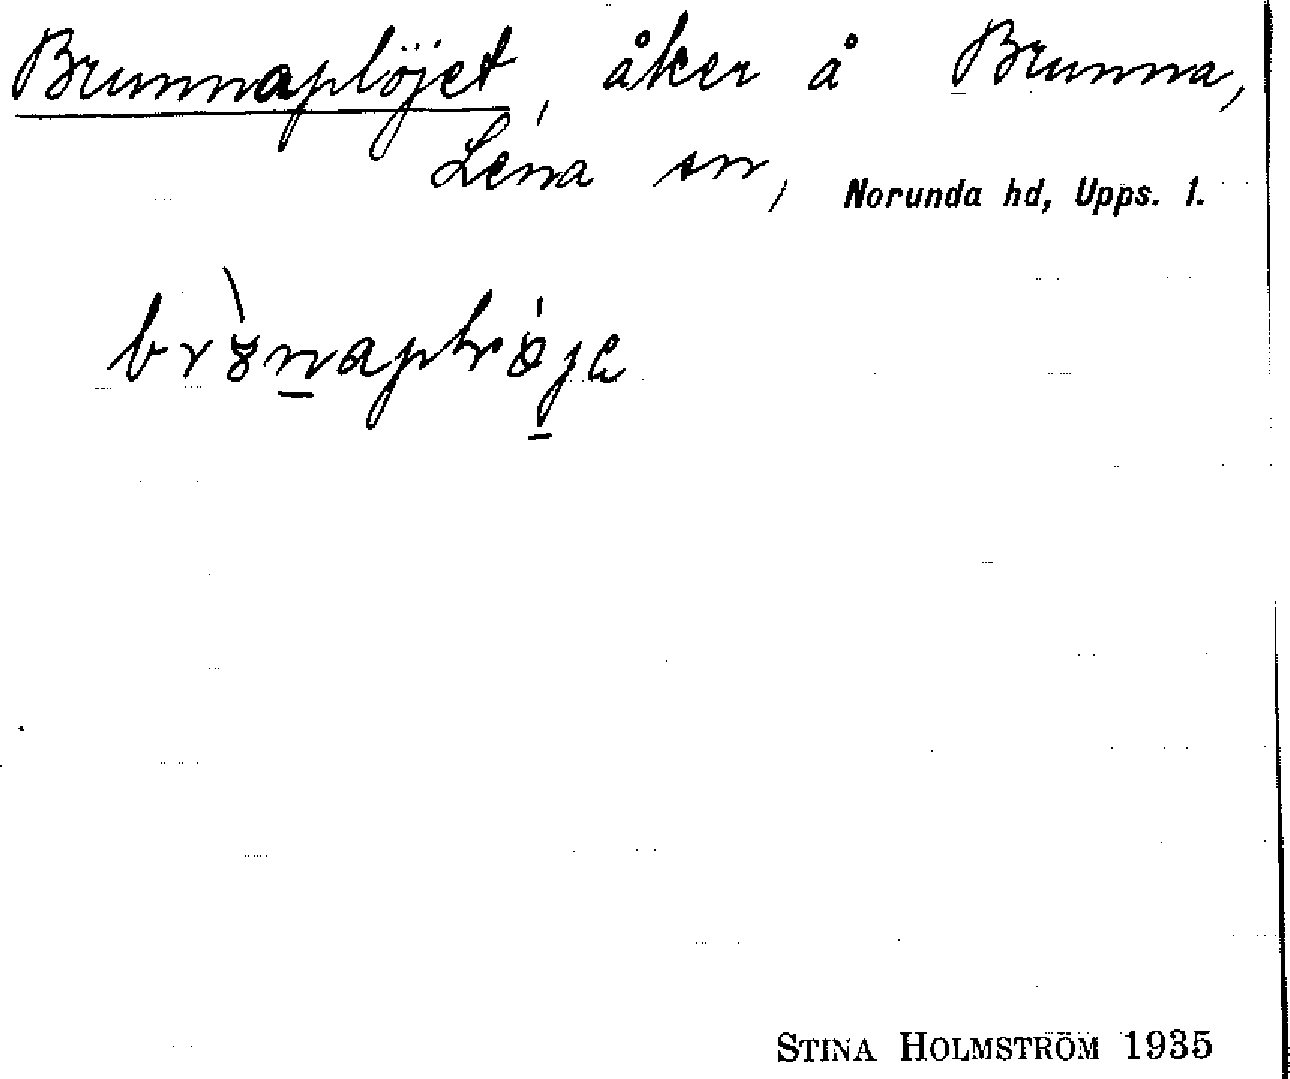 Brunnaplöjet, åker å Brunna,
Lena sn, Norunda hd, Upps. l.
STINA HOLMSTRÖM 1935